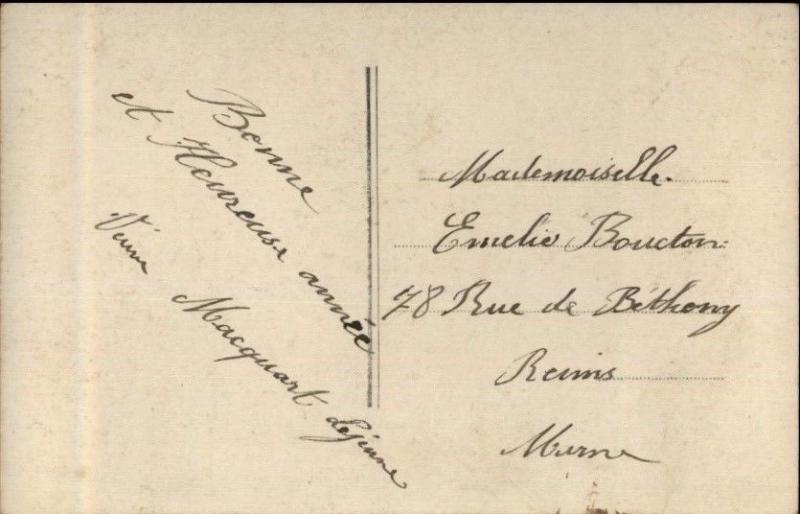 Bonne
et Heureuse année
Macquart Lejeune
Mademoiselle
Emelie Boucton
78 Rue de Béthony
Reims
Marne